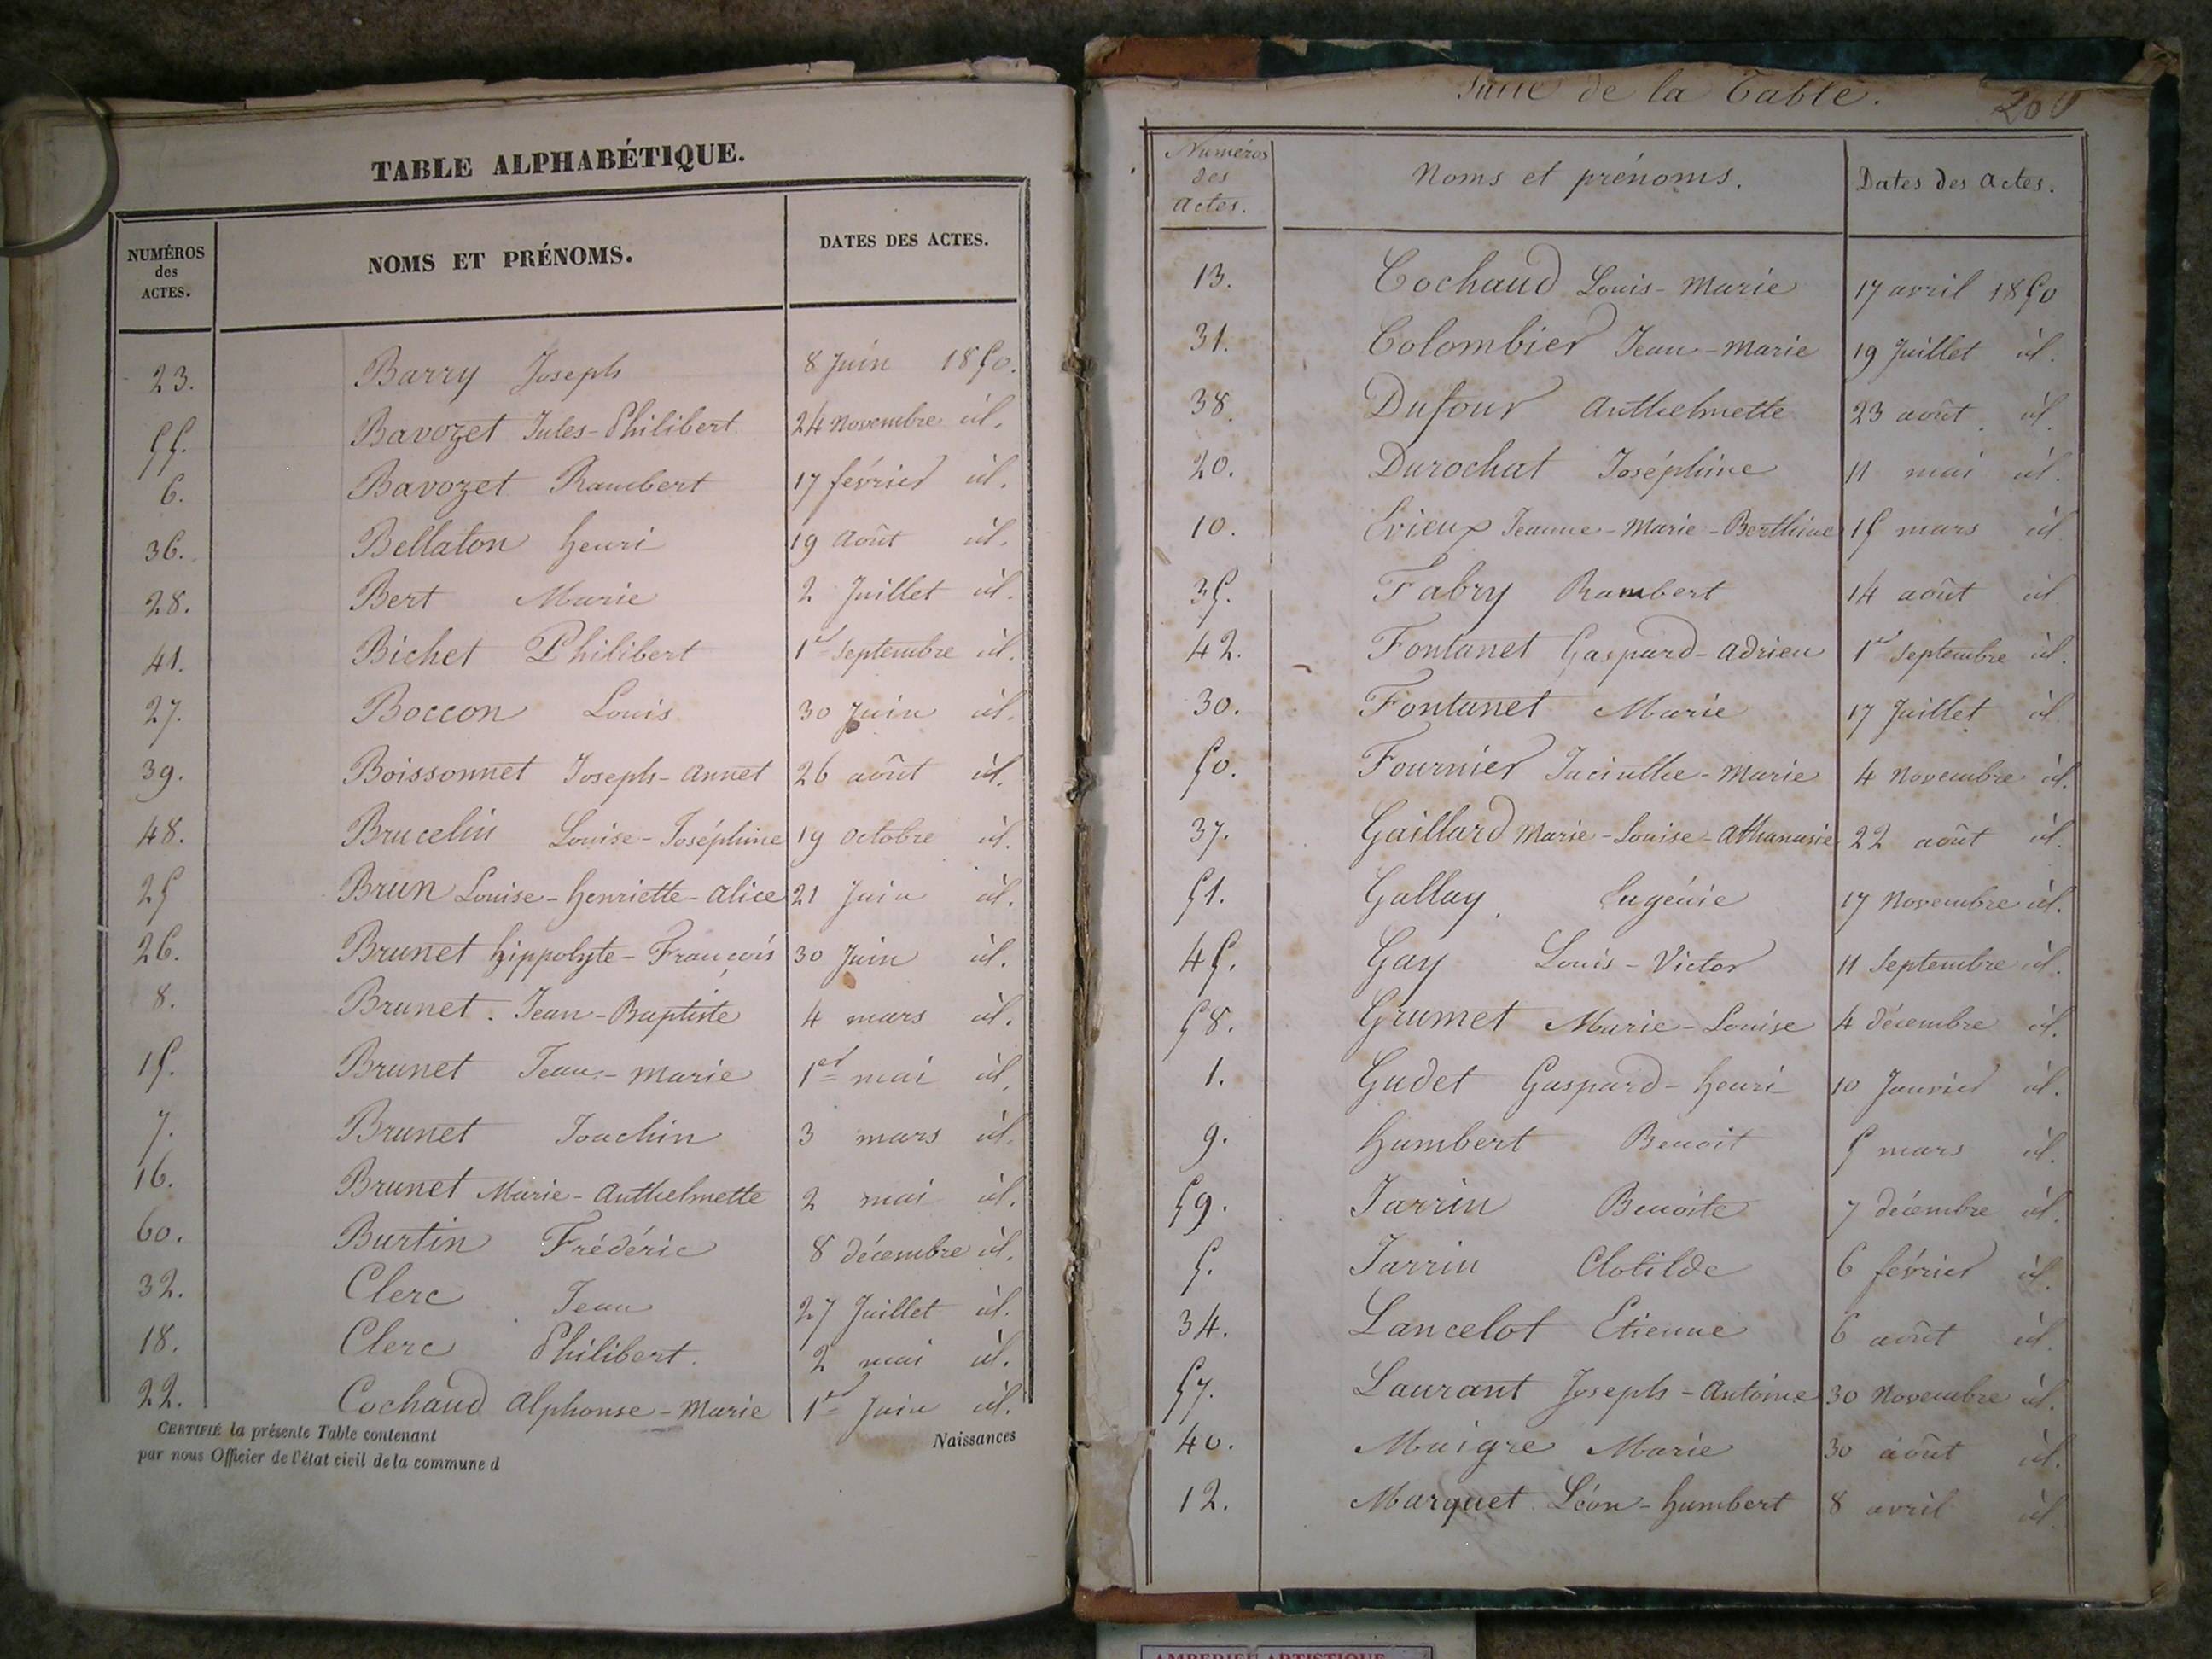 TABLE ALPHABÉTIQUE.
NUMÉROS des ACTES. NOMS ET PRÉNOMS. DATES DES ACTES.
23. Barry Joseph 8 Juin 1850.
55. Bavozet Jules-Philibert 24 Novembre id.
6. Bavozet Rambert 17 février id.
36. Bellaton henri 19 Août id.
28. Bert Marie 2 Juillet id.
41. Bichet Philibert 1er Septembre id.
27. Boccon Louis 30 Juin id.
39. Boissonnet Joseph-annet 26 août id.
48. Brucelin Louise-Joséphine 19 Octobre id.
25 Brun Louise-henriette-alice 21 Juin id.
26. Brunet hippolyte-François 30 Juin id.
8. Brunet. Jean-Baptiste 4 mars id.
15. Brunet Jean-marie 1er mai id.
7. Brunet Joachin 3 mars id.
16. Brunet Marie-Anthelmette 2 mai id.
60. Burtin Frédéric 8 décembre id.
32. Clerc Jean 27 Juillet id.
18. Clerc Philibert. 2 mai id.
22. Cochaud alphonse-marie 1er Juin id.
CERTIFIÉ la présente Table contenant Naissances
par nous Officier de l'état civil de la commune d
Suite de la Table.
Numéros des actes. Noms et prénoms. Dates des actes.
13. Cochaud Louis-marie 17 avril 1850
31. Colombier Jean-marie 19 Juillet id.
38. Dufour anthelmette 23 août id.
20. Durochat Joséphine 11 mai id.
10. Evieux Jeanne-marie-Berthine 15 mars id
35. Fabry Rambert 14 août id
42. Fontanet Gaspard-adrien 1er Septembre id.
30. Fontanet Marie 17 Juillet id
50. Fournier Jacinthe-marie 4 Novembre id.
37. Gaillard marie-Louise-athanasie 22 août id.
51. Gallay Eugénie 17 Novembre id.
45. Gay Louis-Victor 11 Septembre id.
58. Grumet Marie-Louise 4 décembre id.
1. Gudet Gaspard-henri 10 Janvier id.
9. humbert Benoit 5 mars id.
59. Jarrin Benoite 7 décembre id.
5. Jarrin Clotilde 6 février id.
34. Lancelot Etienne 6 août id.
57. Laurant Joseph-Antoine 30 Novembre id.
40. Maigre Marie 30 août id.
12. Marquet Léon-humbert 8 avril id